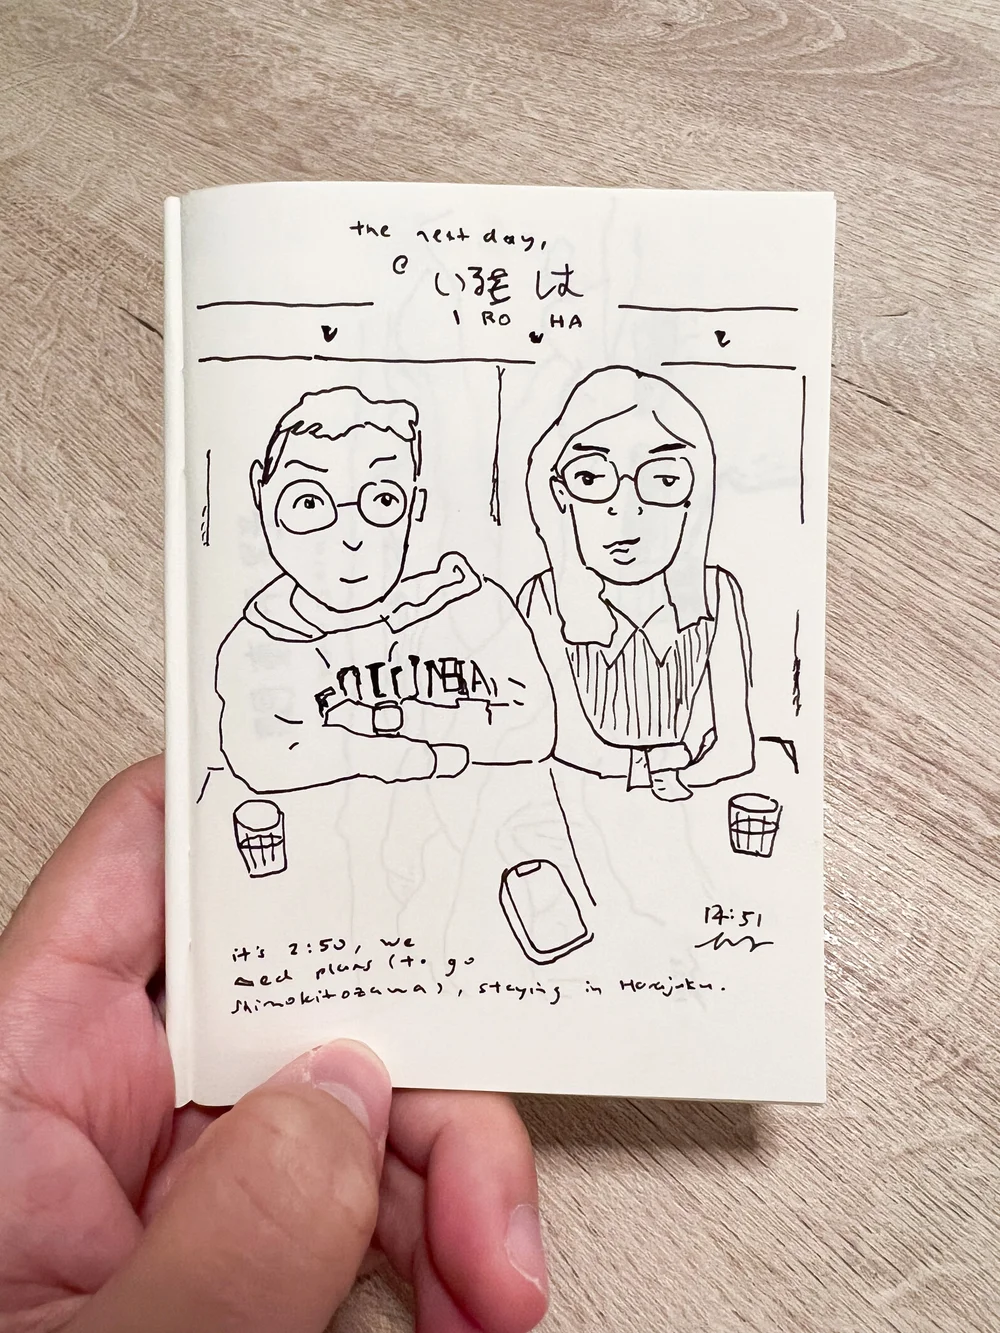 the next day,
@ いろは
I RO HA
14:51
it's 2:50, we
need plans (to go
shimokitozawa), staying in Harajuku.